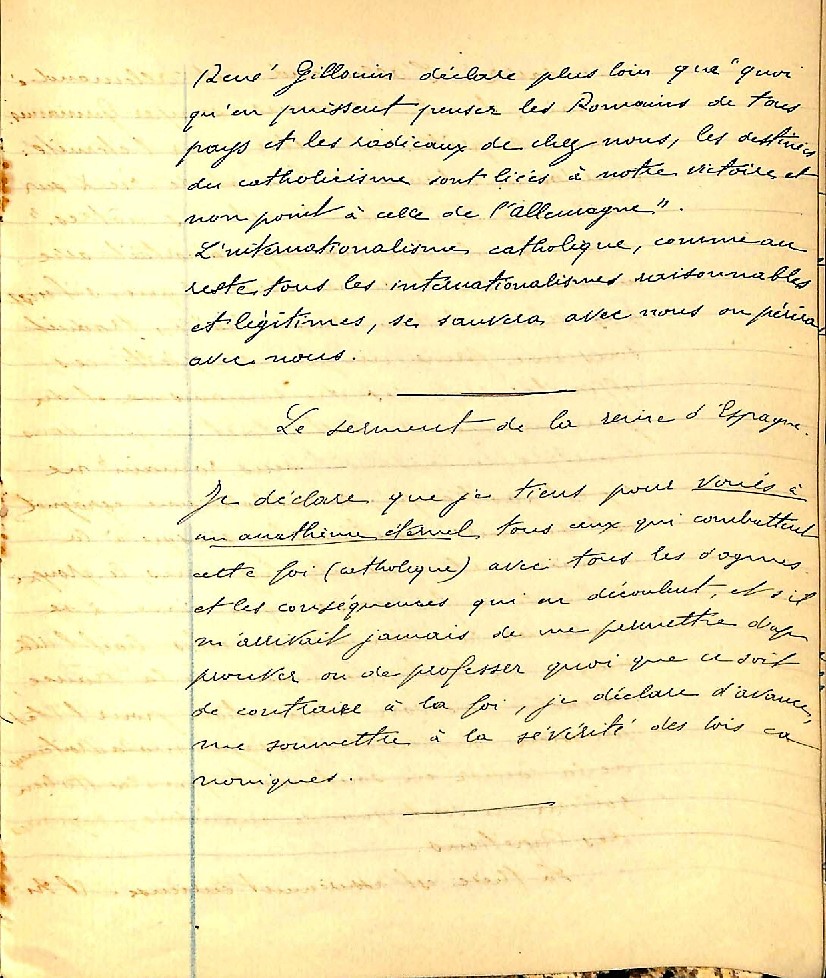 René Gillouin déclare plus loin que "quoi
qu'en puissent penser les Romains de tous
pays et les radicaux de chez nous, les destinées
du catholicisme sont liées à notre victoire et
non point à celle de l'Allemagne".
L'internationalisme catholique, comme au
reste tous les internationalismes raisonnables
et légitimes, se sauvera avec nous ou périra
avec nous.
Le serment de la reine d'Espagne.
Je déclare que je tiens pour voués à
un anathème éternel tous ceux qui combattent
cette foi (catholique) avec tous les dogmes
et les conséquences qui en découlent, et s'il
m'arrivait jamais de me permettre d'ap
prouver ou de professer quoi que ce soit
de contraire à la foi, je déclare d'avance,
me soumettre à la sévérité des lois ca
noniques.